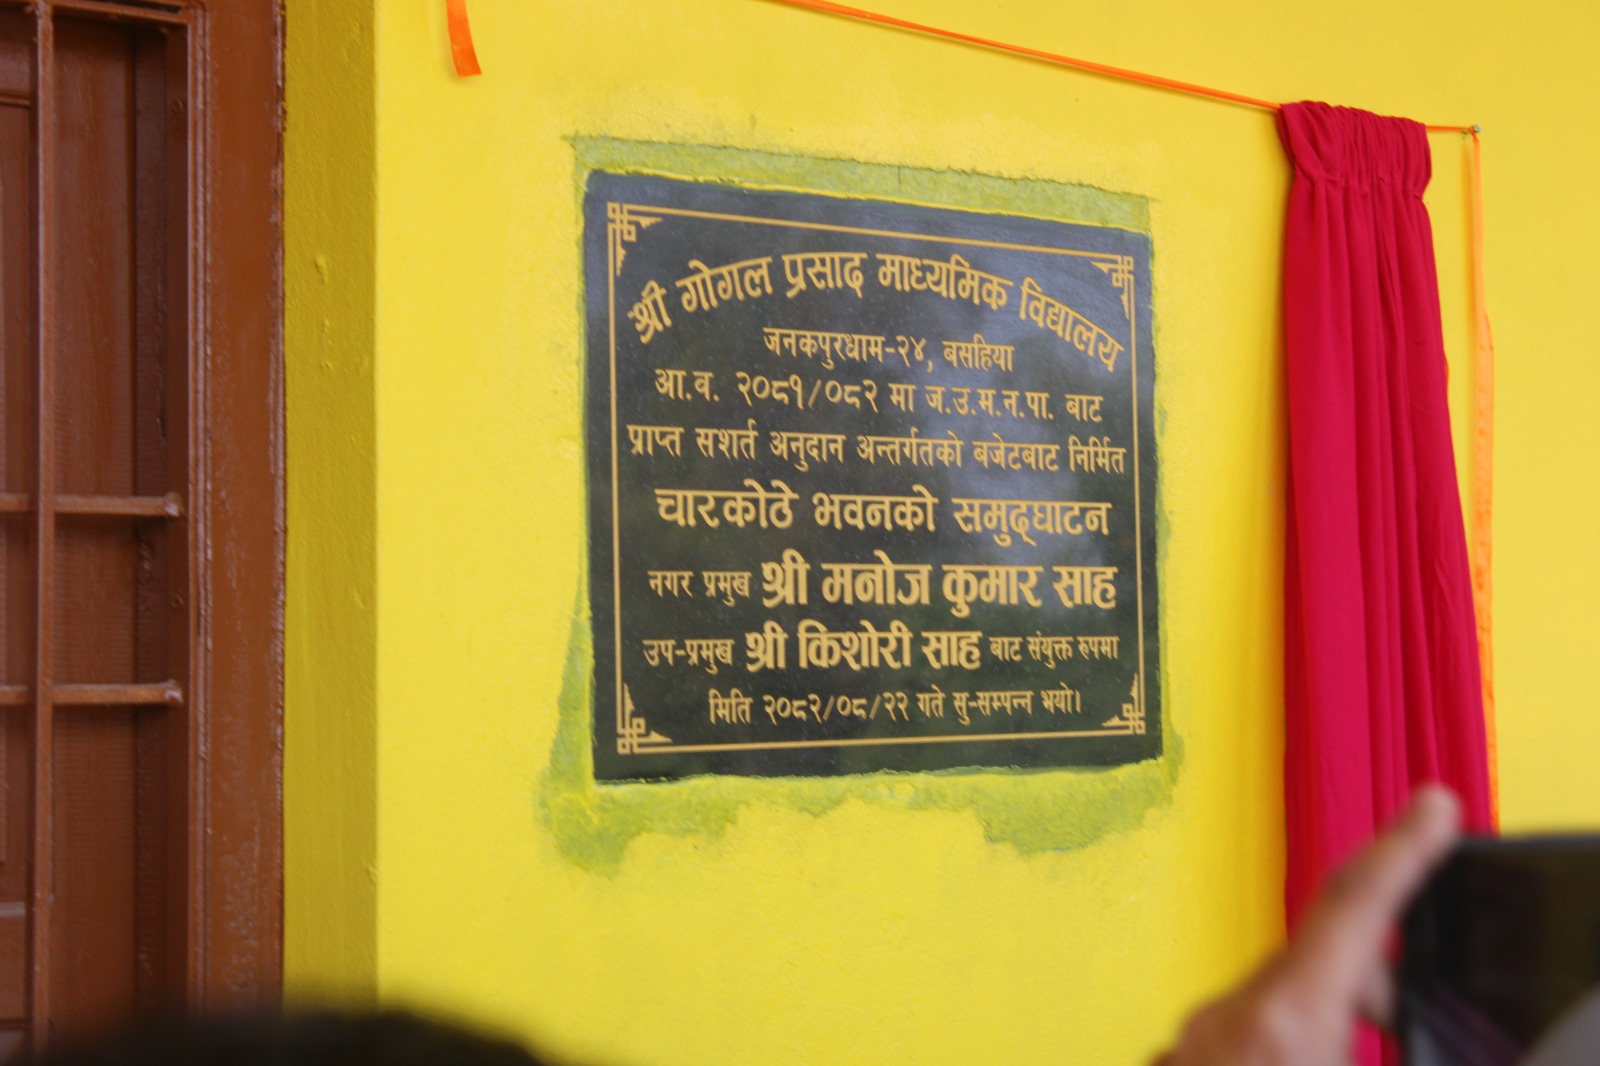 श्री गोगल प्रसाद माध्यमिक विद्यालय
जनकपुरधाम-२४, बसहिया
आ.व. २०८१/०८२ मा ज.उ.म.न.पा. बाट
प्राप्त सशर्त अनुदान अन्तर्गतको बजेटबाट निर्मित
चारकोठे भवनको समुद्घाटन
नगर प्रमुख श्री मनोज कुमार साह
उप-प्रमुख श्री किशोरी साह बाट संयुक्त रुपमा
मिति २०८२/०८/२२ गते सु-सम्पन्न भयो।